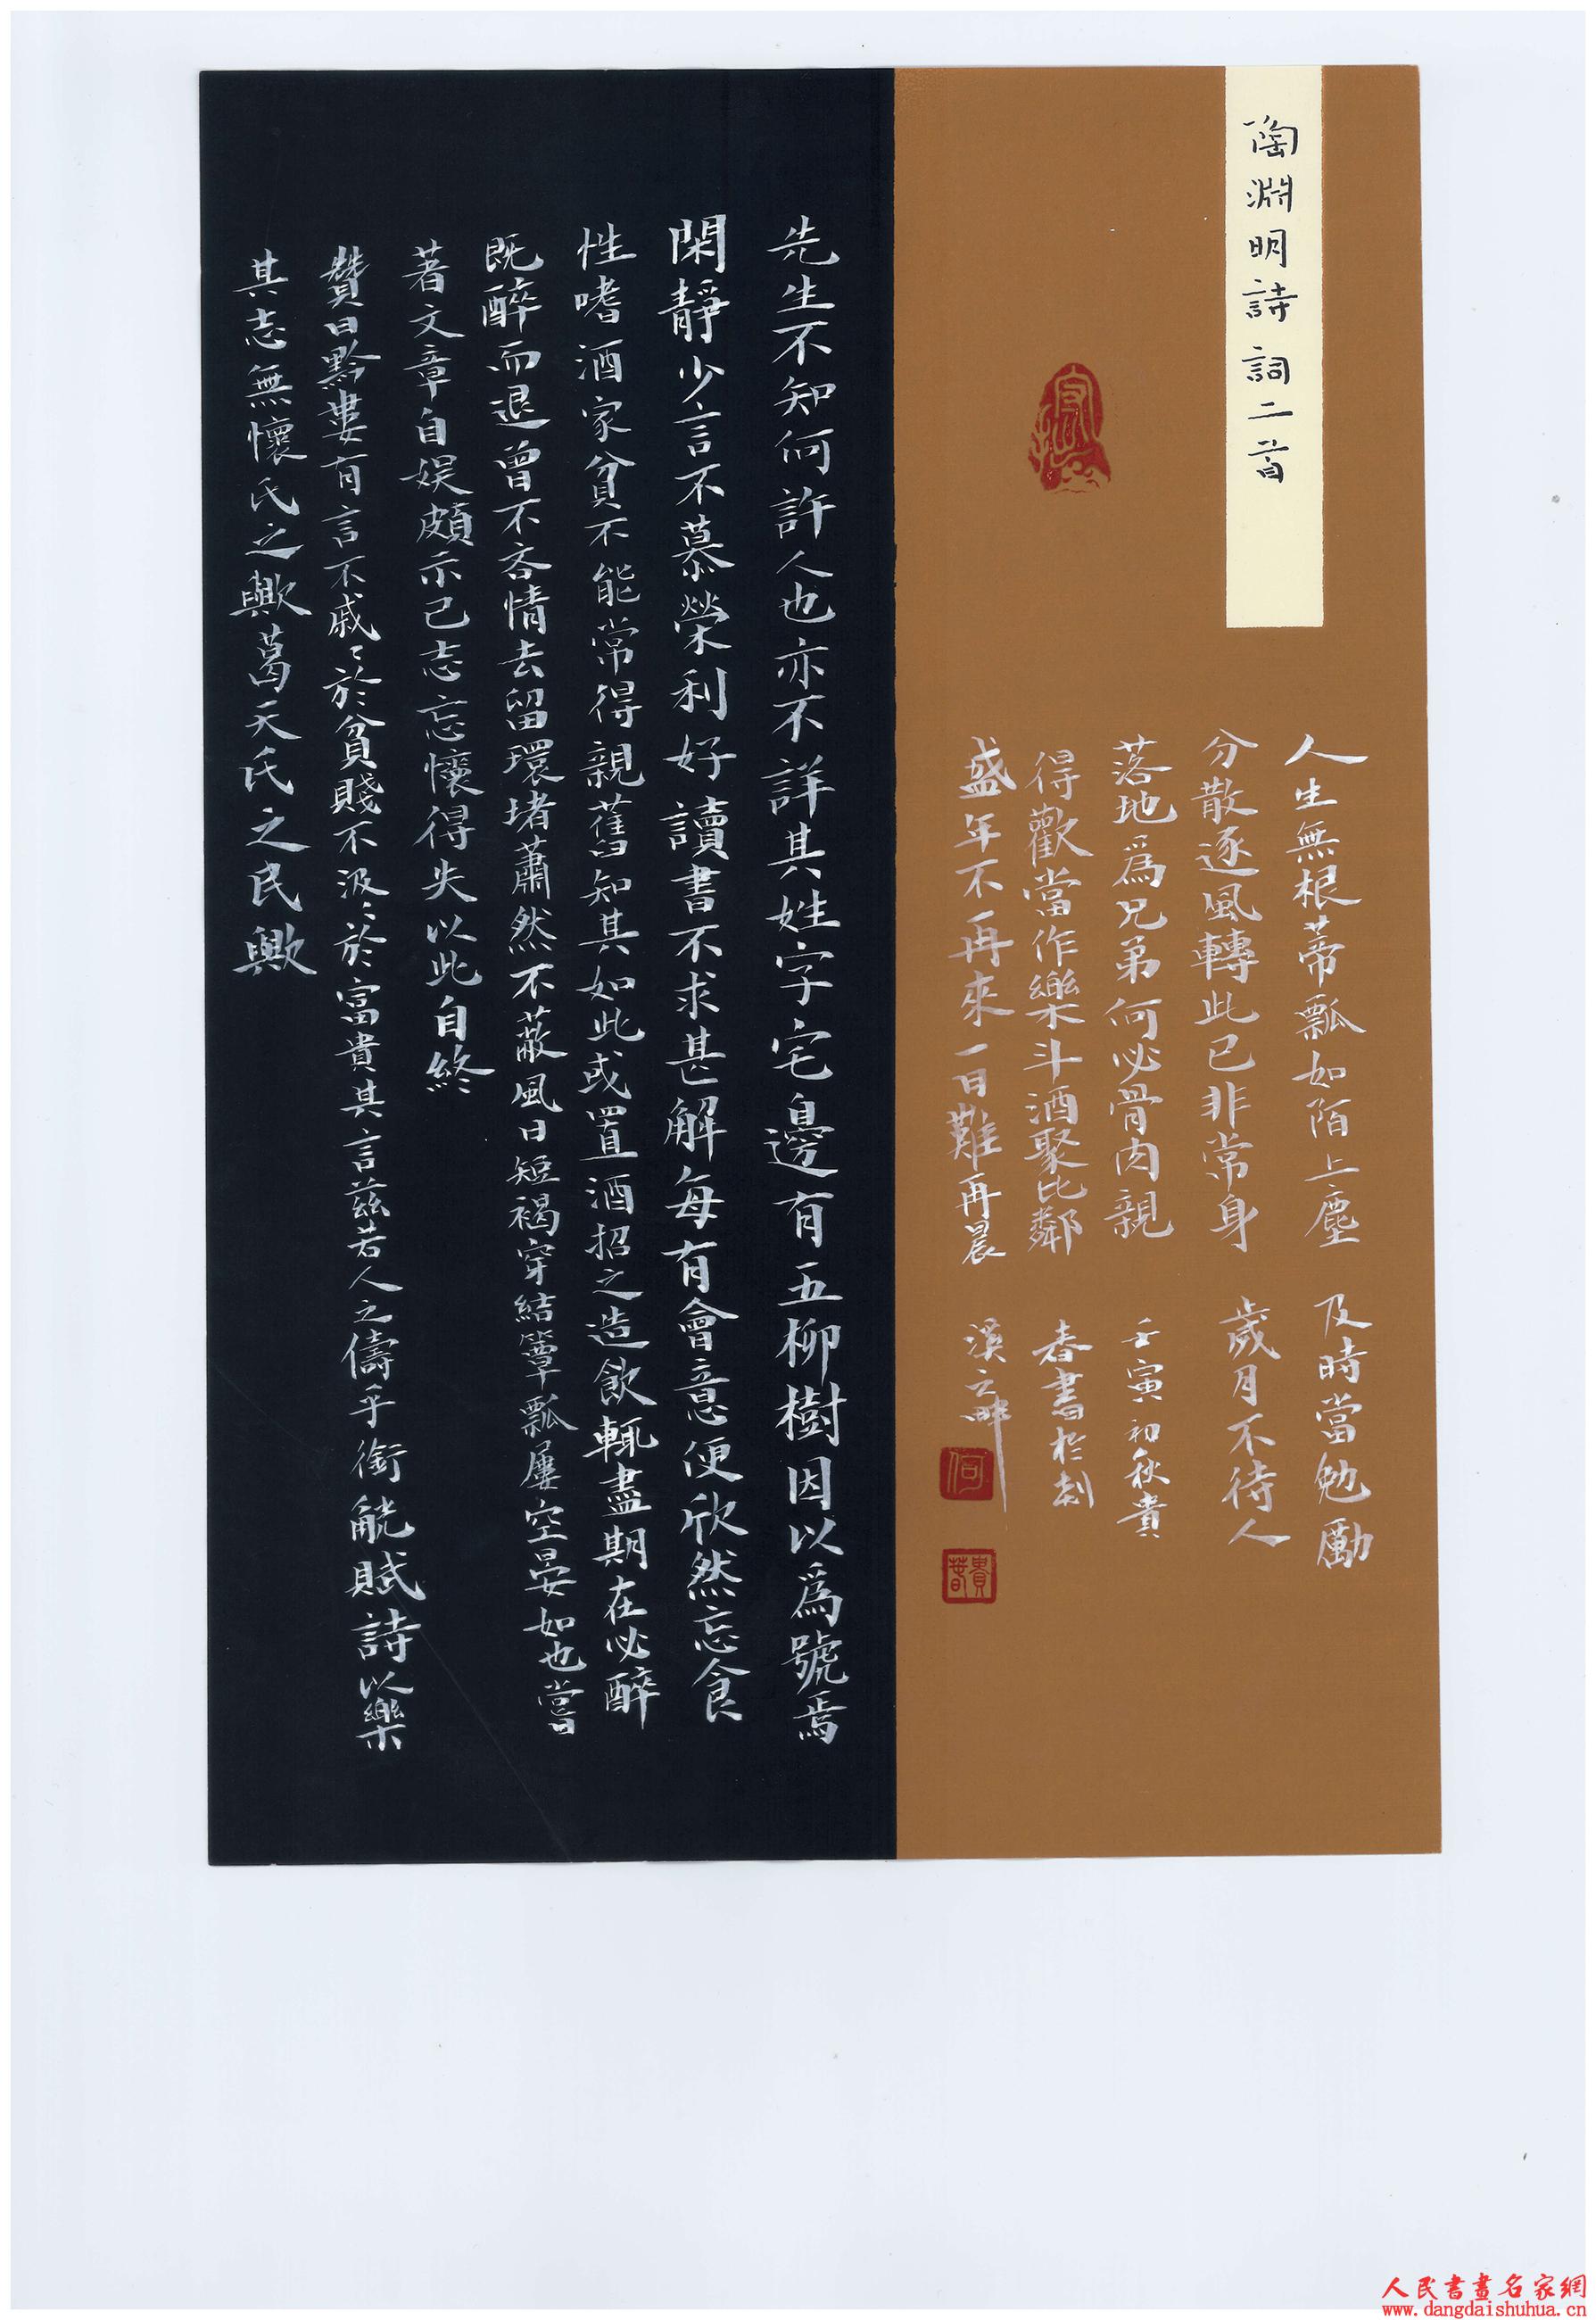 陶淵明詩詞二首
人生無根蒂飄如陌上塵
分散逐風轉此已非常身
落地為兄弟何必骨肉親
得歡當作樂斗酒聚比鄰
盛年不再來一日難再晨
及時當勉勵
歲月不待人
壬寅初秋貴
春書於剡
溪之畔
何
貴春
先生不知何許人也亦不詳其姓字宅邊有五柳樹因以為號焉
閑靜少言不慕榮利好讀書不求甚解每有會意便欣然忘食
性嗜酒家貧不能常得親舊知其如此或置酒招之造飲輒盡期在必醉
既醉而退曾不吝情去留環堵蕭然不蔽風日短褐穿結簞瓢屢空晏如也嘗
著文章自娛頗示己志忘懷得失以此自終
贊曰黔婁有言不戚々於貧賤不汲々於富貴其言茲若人之儔乎銜觥賦詩以樂
其志無懷氏之歟葛天氏之民歟
人民書畫名家網
www.dangdaishuhua.cn